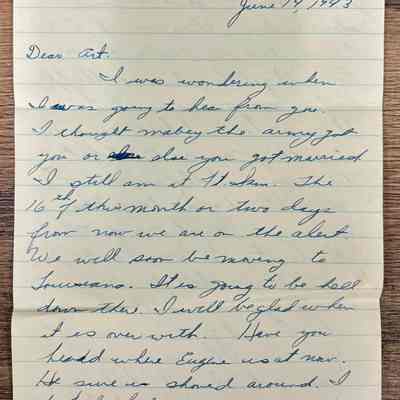 June 14, 1943
Dear Art.
I was wondering when
I was going to hear from you.
I thought mabey the army got
you or else you got married
I still am at Ft. Sam. The
16th of this month or two days
from now we are on the alert.
We will soon be moving to
Louisiana. It is going to be hell
down there. I will be glad when
it is over with. Have you
heard where Eugene is at now.
He sure is shoved around. I